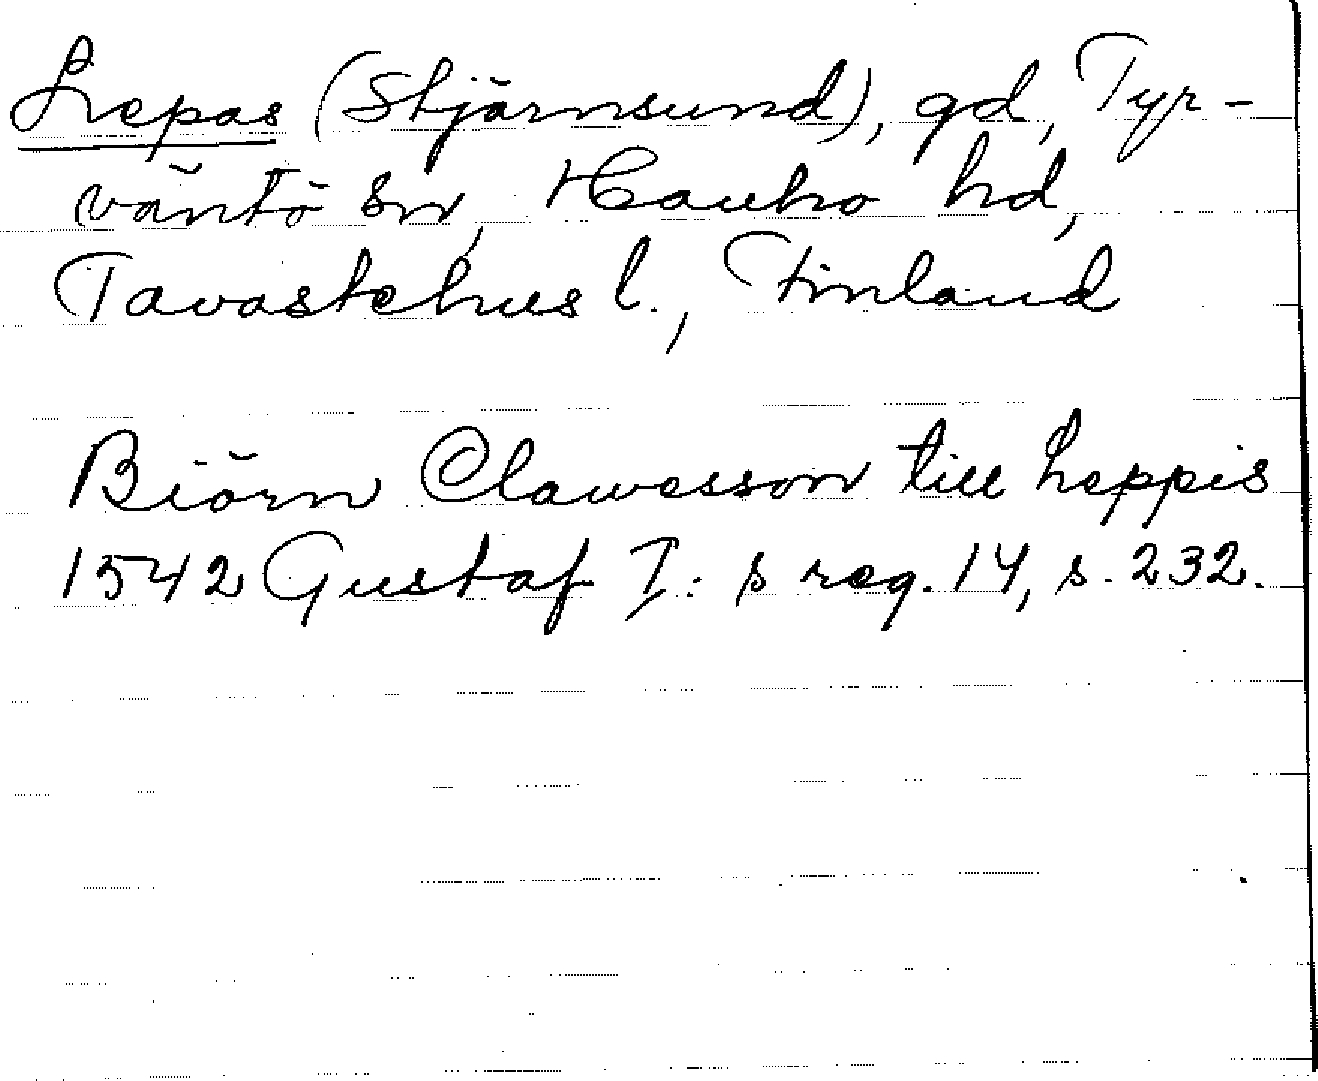 Lepas (Stjärnsund), gd, Tyr-
väntö sn, Hauho hd,
Tavastehus l., Finland
Biörn Clawesson till Leppis
1542 Gustaf I: s reg. 14, s. 232.